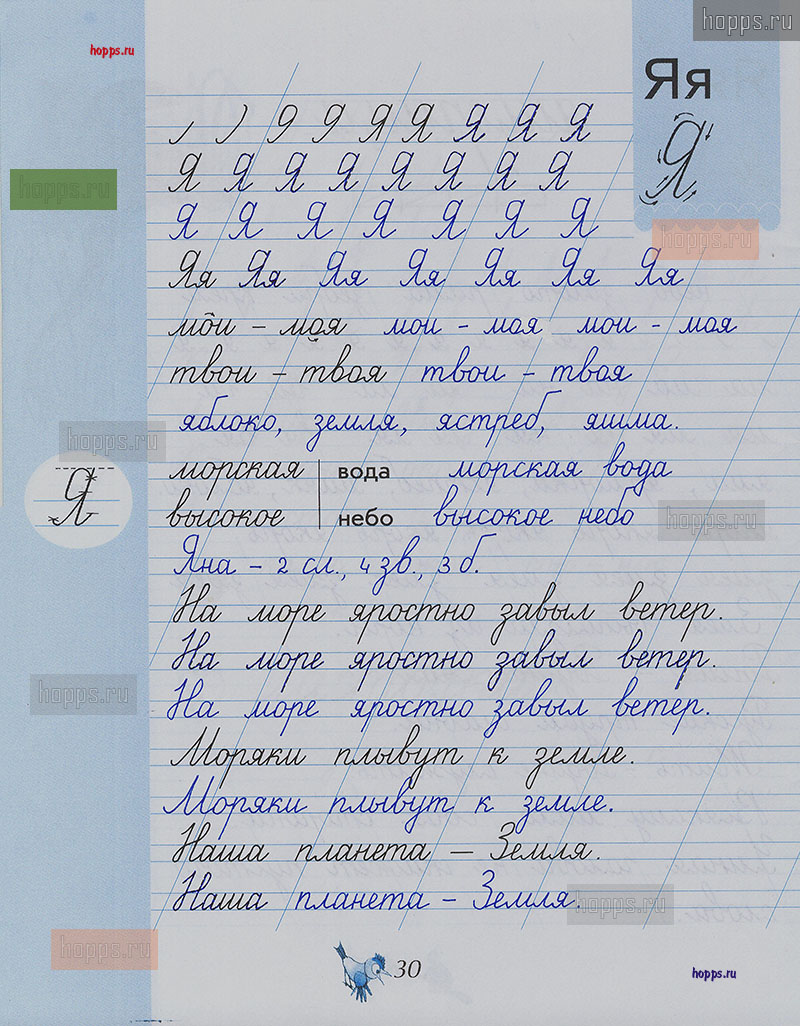 hopps.ru
hopps.ru
Яя
Я
Я Я Я Я Я Я Я
hopps.ru
Я Я Я Я Я Я Я Я
Я Я Я Я Я Я Я
hopps.ru
Яя Яя Яя Яя Яя Яя Яя
мои – моя мои - моя мои - моя
твои – твоя твои – твоя
яблоко, земля, ястреб, яшма.
hopps.ru
морская вода морская вода
Я
высокое небо высокое небо
hopps.ru
Яна – 2 сл., 4 зв., 3 б.
На море яростно завыл ветер.
На море яростно завыл ветер.
hopps.ru
На море яростно завыл ветер.
Моряки плывут к земле.
Моряки плывут к земле.
Наша планета – Земля.
Наша планета – Земля.
hopps.ru
hopps.ru
30
hopps.ru